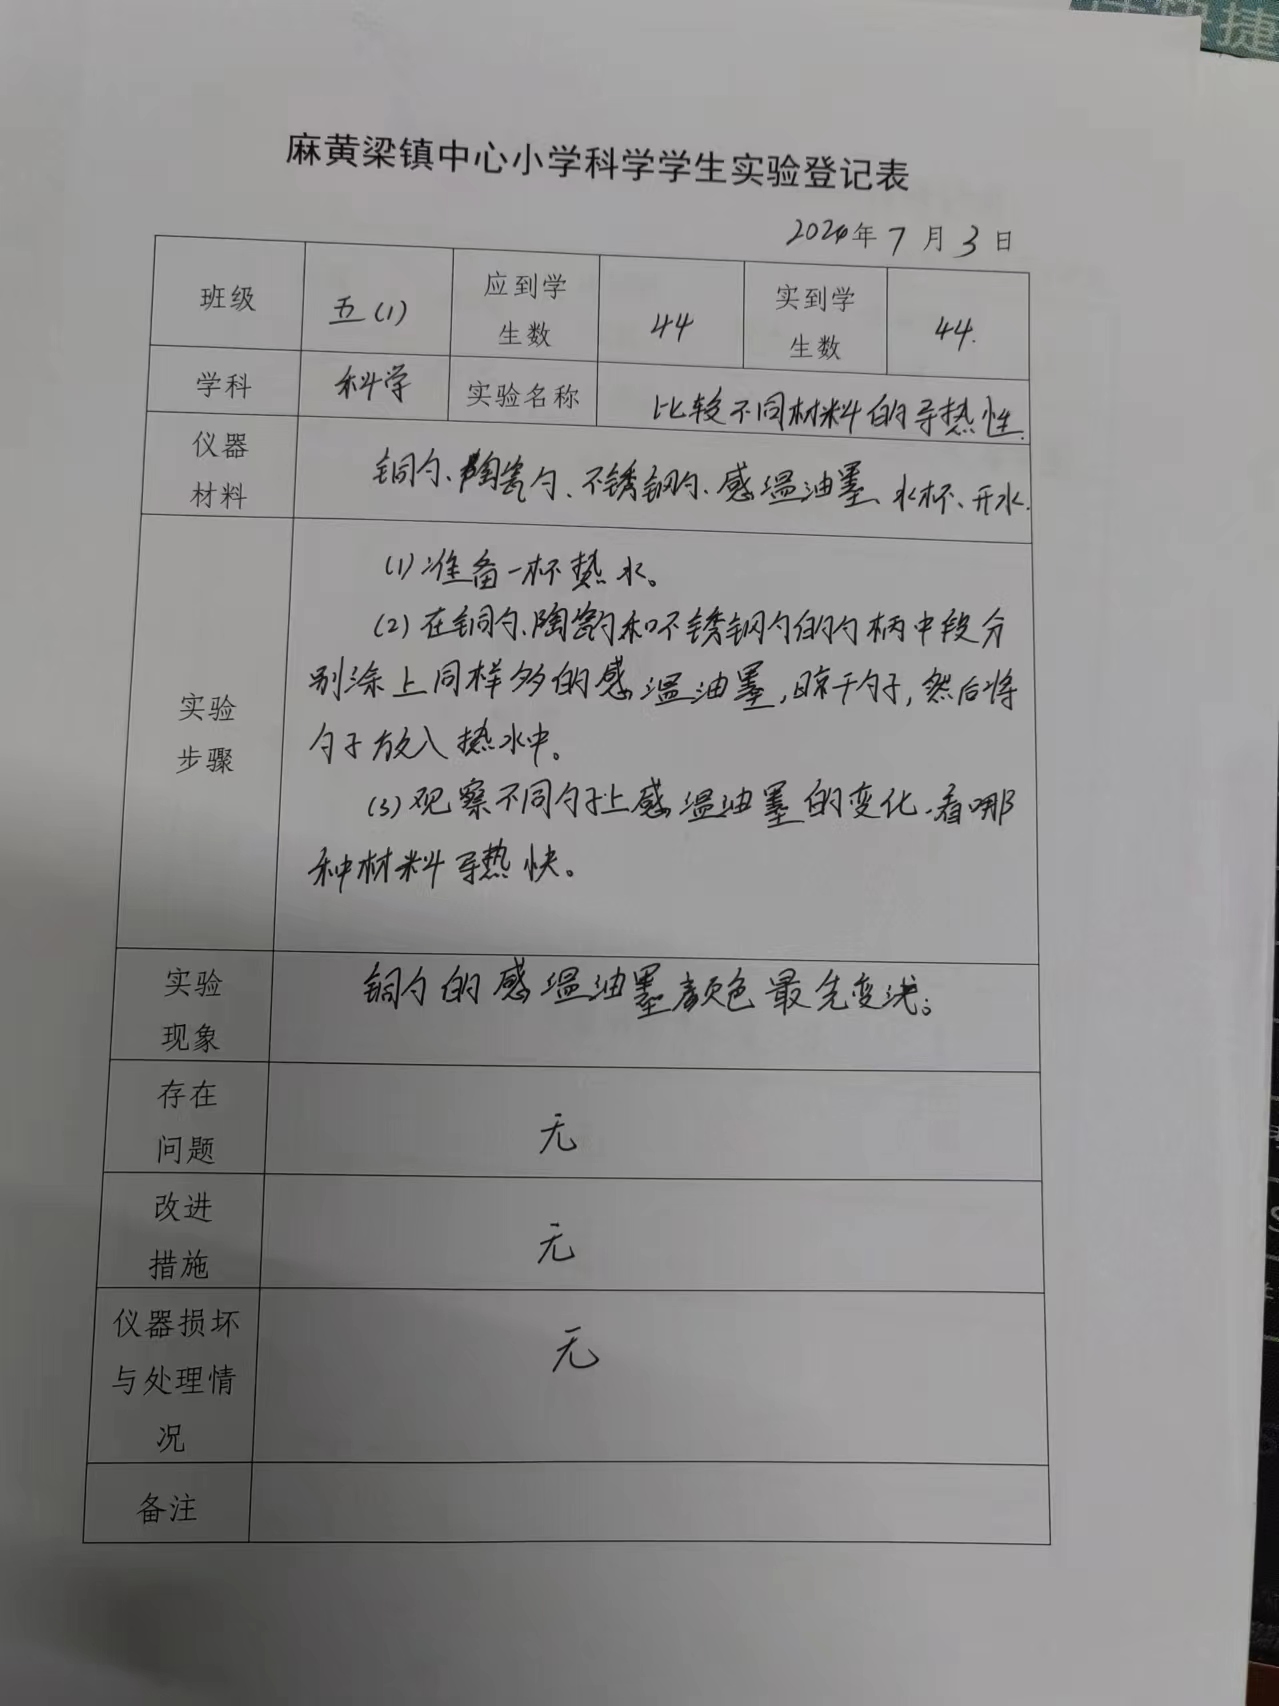 快捷
麻黄梁镇中心小学科学学生实验登记表
2024年7月3日
班级 五(1) 应到学生数 44 实到学生数 44.
学科 科学 实验名称 比较不同材料的导热性.
仪器材料 铜勺、陶瓷勺、不锈钢勺、感温油墨、水杯、开水.
实验步骤
(1)准备一杯热水。
(2)在铜勺、陶瓷勺和不锈钢勺的勺柄中段分
别涂上同样多的感温油墨,晾干勺子,然后将
勺子放入热水中。
(3)观察不同勺子上感温油墨的变化.看哪
种材料导热快。
实验现象 铜勺的感温油墨颜色最先变浅。
存在问题 无
改进措施 无
仪器损坏与处理情况 无
备注